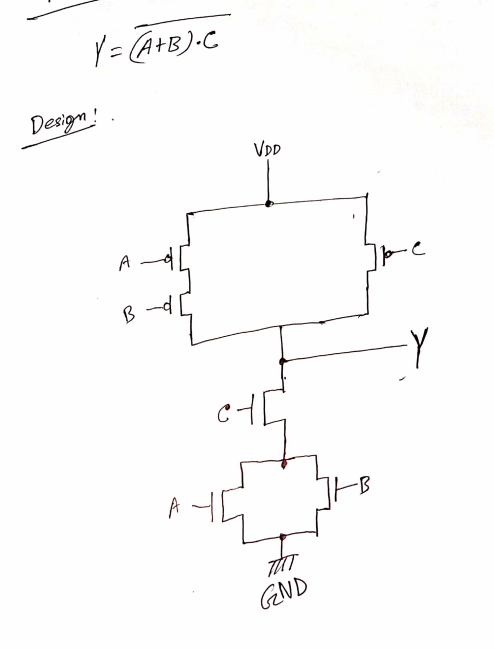 Y = \overline{(A+B)·C}
Design:
VDD
A
C
B
Y
C
A
B
GND